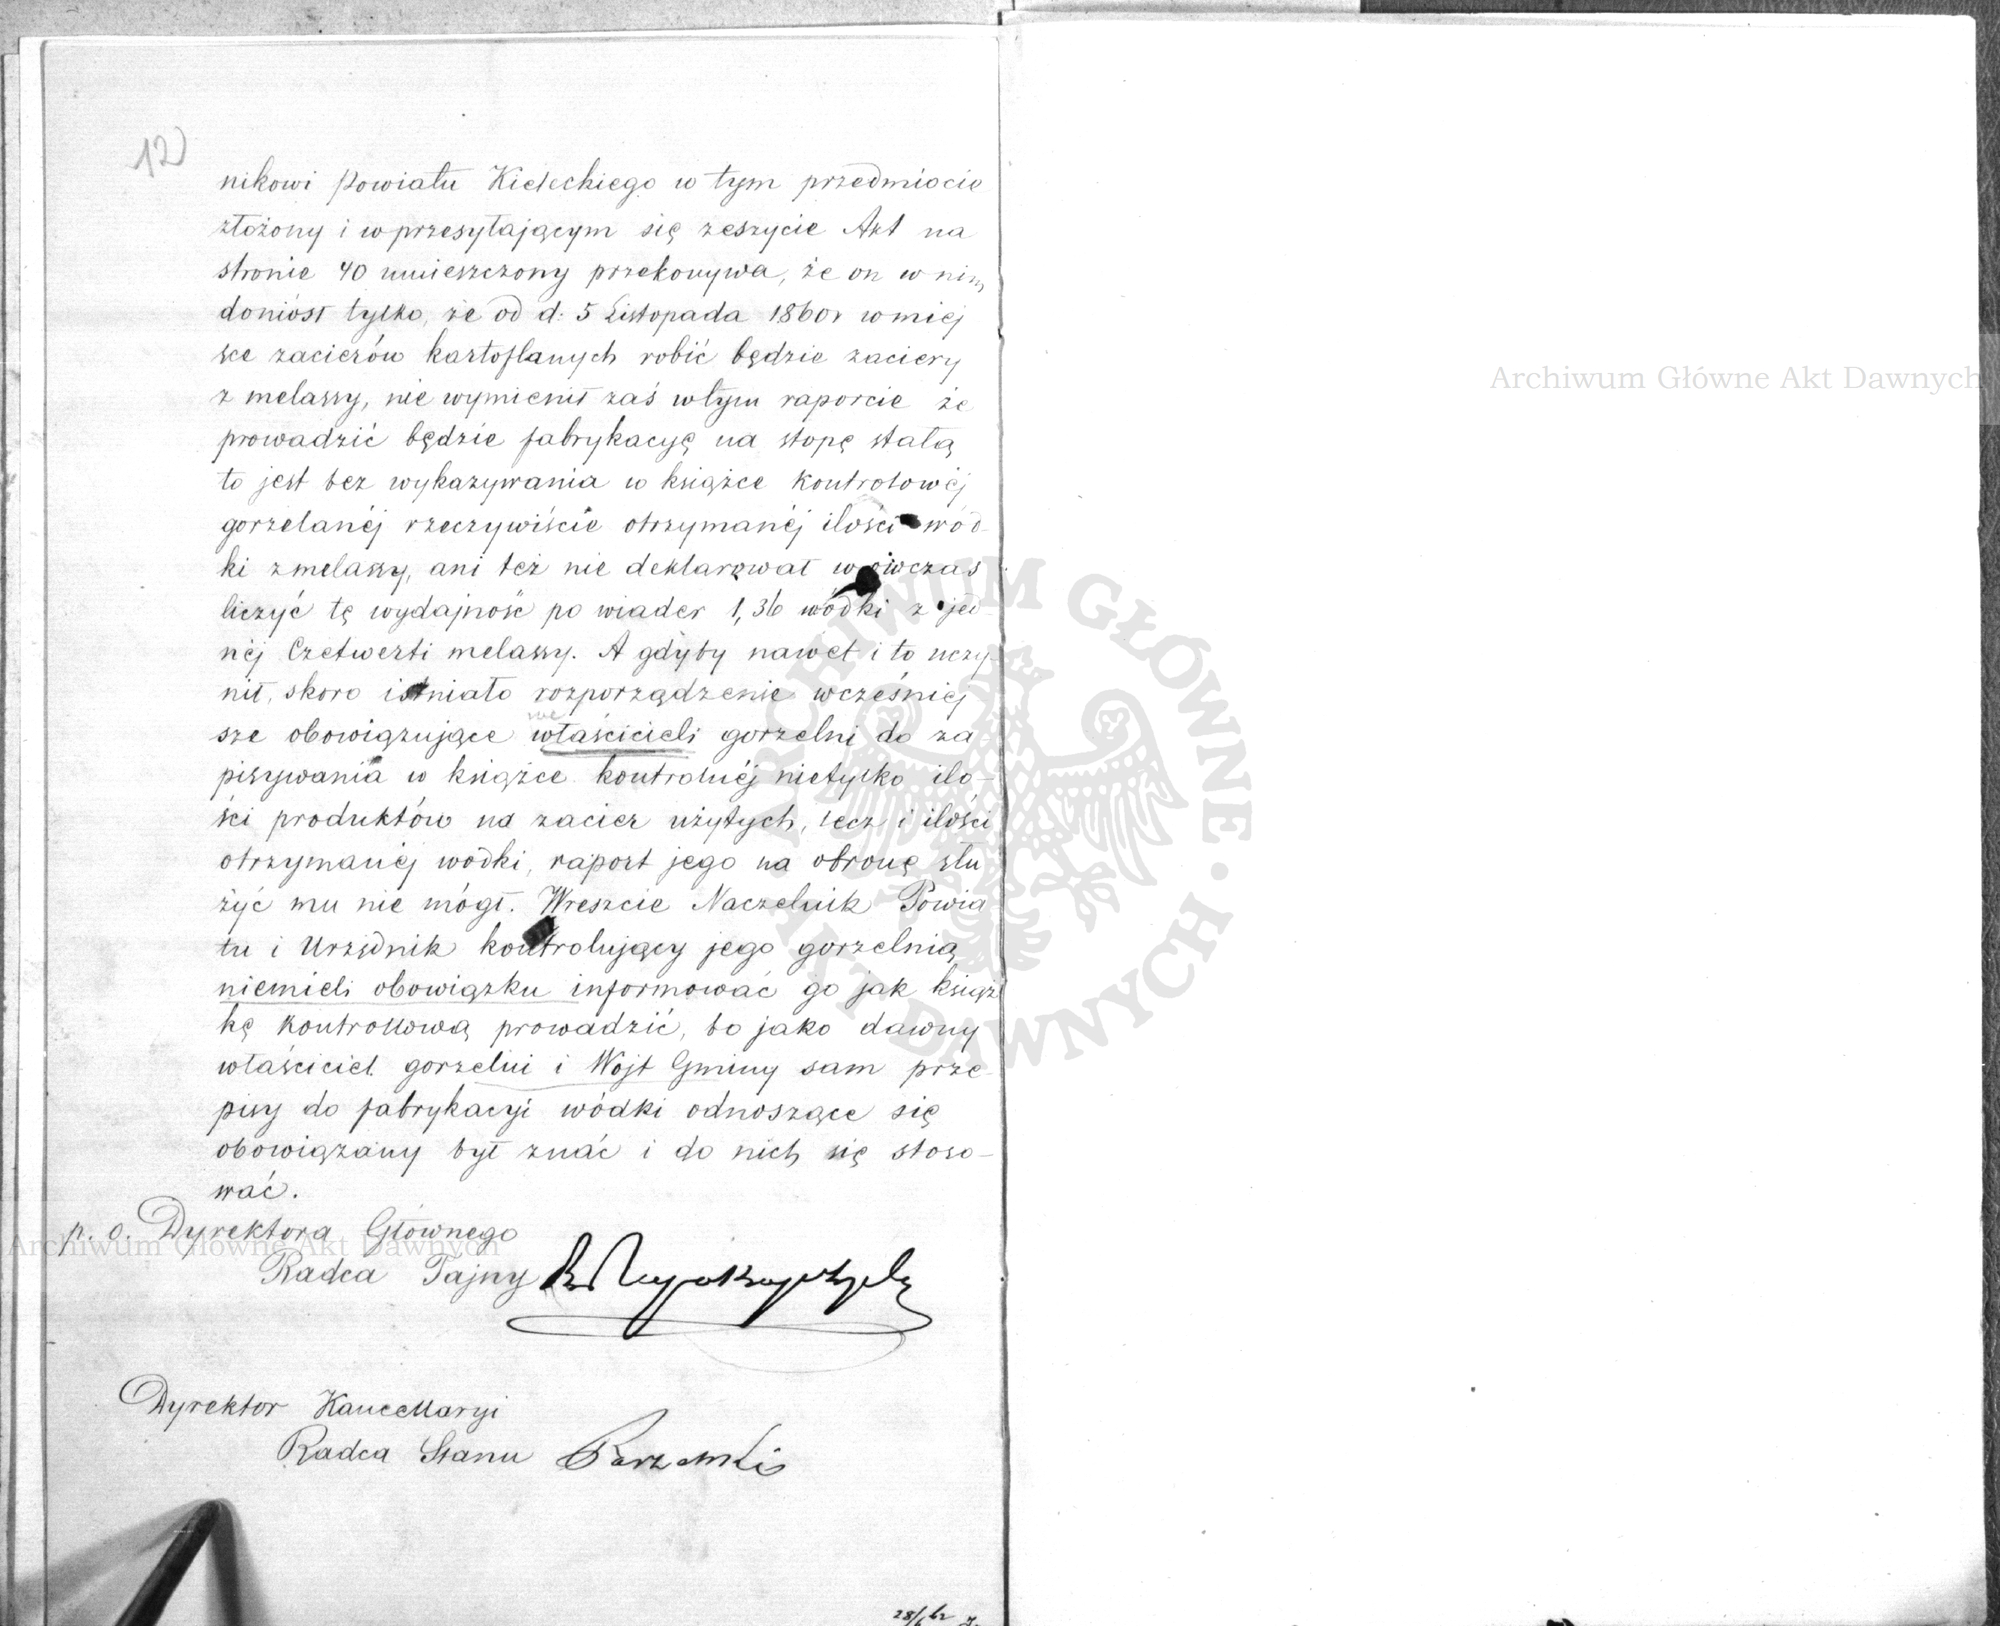 12
nikowi Powiatu Kieleckiego w tym przedmiocie
złożony i w przesyłającym się zeszycie Akt na
stronie 40 umieszczony przekonywa, że on w nim
doniósł tylko, że od d: 5 Listopada 1860 r w miej
sce zacierów kartoflanych robić będzie zaciery
z melassy, nie wymienił zaś w tym raporcie że
prowadzić będzie fabrykacyę na stopę stałą
to jest bez wykazywania w książce kontrolowéj
gorzelanéj rzeczywiście otrzymanéj ilości wód-
ki z melassy, ani też nie deklarował wówczas
liczyć tę wydajność po wiader 1,36 wódki z jed-
néj Czetwerti melassy. A gdyby nawet i to uczy-
nił, skoro istniało rozporządzenie wcześniej
sze obowiązujące właścicieli gorzelni do za-
pisywania w książce kontrolnéj nietylko ilo-
ści produktów na zacier użytych, lecz i ilości
otrzymanéj wódki, raport jego na obronę słu
żyć mu nie mógł. Wreszcie Naczelnik Powia
tu i Urzędnik kontrolujący jego gorzelnią
niemieli obowiązku informować go jak książ
kę kontrollową prowadzić, bo jako dawny
właściciel gorzelni i Wójt Gminy sam prze-
pisy do fabrykacyi wódki odnoszące się
obowiązany był znać i do nich się stoso-
wać.
p. o. Dyrektora Głównego
Radca Tajny
Dyrektor Kancellaryi
Radca Stanu
28/6 62
Archiwum Główne Akt Dawnych
Archiwum Główne Akt Dawnych
ARCHIWUM GŁÓWNE • AKT DAWNYCH •